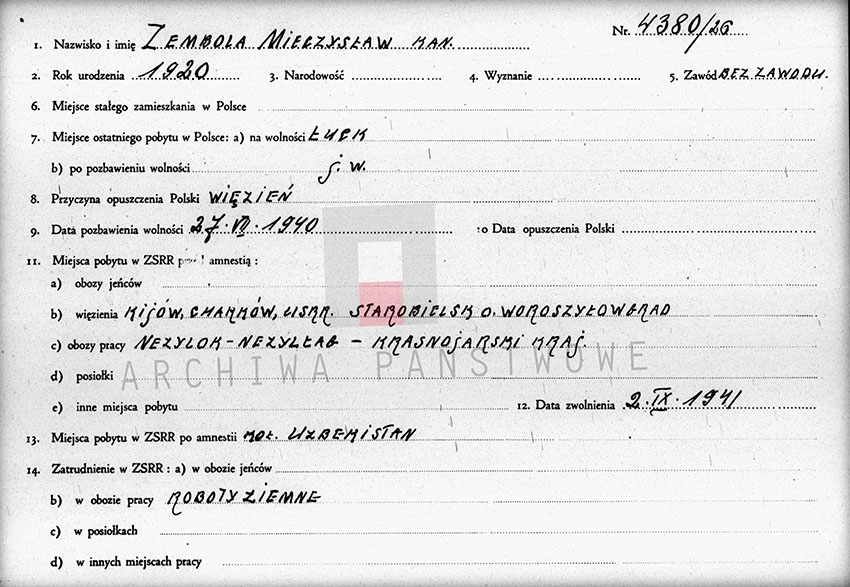 Nr. 4380/26
1. Nazwisko i imię ZEMBOLA MIECZYSŁAW KAN.
2. Rok urodzenia 1920 3. Narodowość 4. Wyznanie 5. Zawód BEZ ZAWODU.
6. Miejsce stałego zamieszkania w Polsce
7. Miejsce ostatniego pobytu w Polsce: a) na wolności ŁUCK
b) po pozbawieniu wolności j. w.
8. Przyczyna opuszczenia Polski WIĘZIEŃ
9. Data pozbawienia wolności 27.VII.1940 10 Data opuszczenia Polski
11. Miejsca pobytu w ZSRR amnestią :
a) obozy jeńców
b) więzienia KIJÓW, CHARKÓW, USRR. STAROBIELSK O. WOROSZYŁOWGRAD
c) obozy pracy NEZYLOK-NEZYLŁAG - KRASNOJARSKI KRAJ.
d) posiołki
ARCHIWA PAŃSTWOWE
e) inne miejsca pobytu 12. Data zwolnienia 2.IX.1941
13. Miejsca pobytu w ZSRR po amnestii KOŁ. UZBEKISTAN
14. Zatrudnienie w ZSRR : a) w obozie jeńców
b) w obozie pracy ROBOTY ZIEMNE
c) w posiołkach
d) w innych miejscach pracy